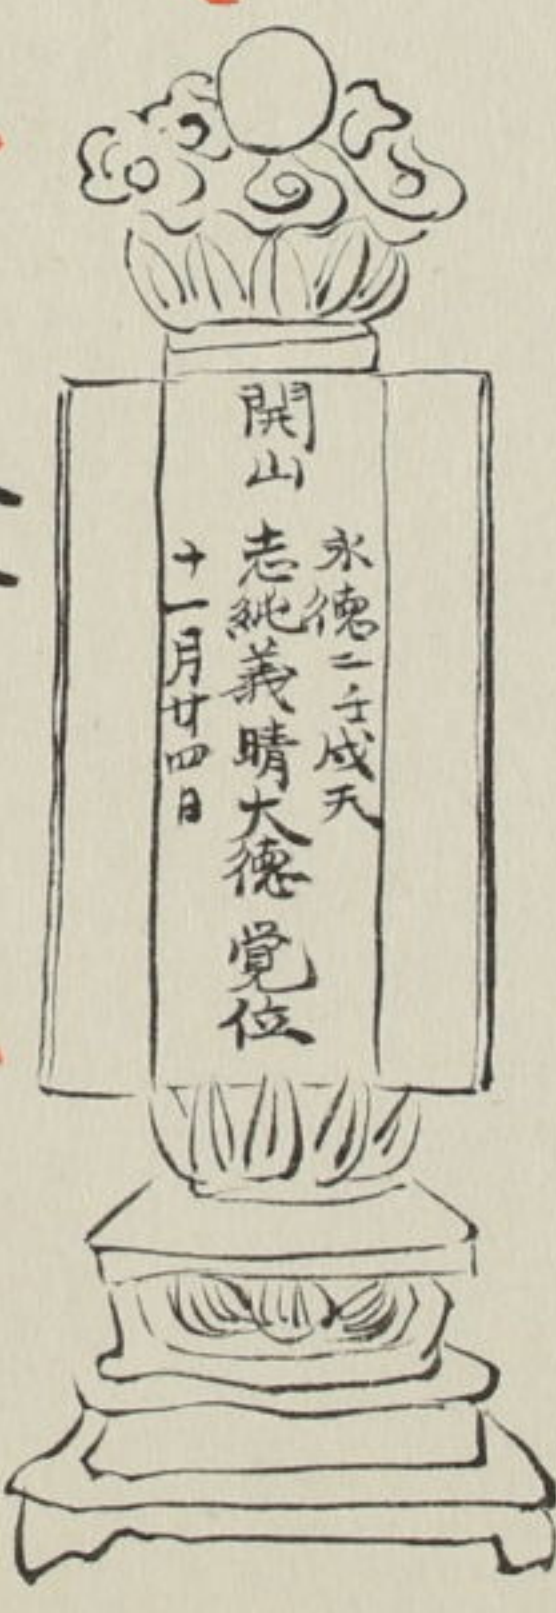 永徳二壬戌天
開山 志純義晴大徳 覚位
十一月廿四日